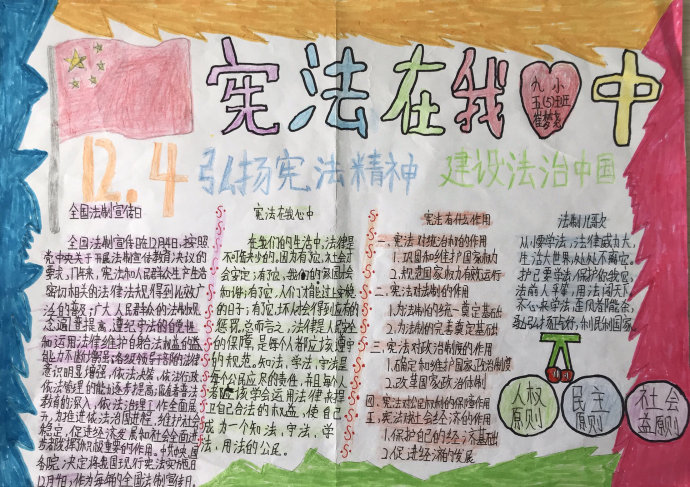 宪法在我心中
九小
五(5)班
崔梦尧
12.4
弘扬宪法精神 建设法治中国
全国法制宣传日
全国法制宣传日是12月4日,按照
党中央关于开展法制宣传教育决议的
要求,17年来,宪法和人民群众生产生活
密切相关的法律法规,得到比较广
泛的普及;广大人民群众的法制观
念逐步提高,遵纪守法的自觉性
和运用法律维护自身合法权益的
能力不断增强;各级领导干部的法律
意识明显增强,依法决策,依法行政,
依法管理的能力逐步提高;随着普法
教育的深入,依法治理工作全面展
宪法在我心中
在我们的生活中,法律是
不可或缺少的。因为有了它,社会才
会安定;有了它,我们的家园会
和谐;有了它,人们才能过上安稳
的日子;有了它,坏人就会得到应有的
惩罚。总而言之,法律是人民生活
的保障,是每个人都应该遵守
的规范。知法,学法,守法是
每个公民应尽的责任。而且每个人
者应该学会运用法律来维
护自己合法的权益,使自己
成为一个知法,守法,学
法,用法的公民。
宪法有什么作用
一、宪法对统治权的作用
1.巩固和维护国家权力
2.规范国家权力有效运行
二、宪法对法制的作用
1.为法制的统一奠定基础
2.为法制的完善奠定基础
三、宪法对政治制度的作用
1.确定和维护国家政治制度
2.改革国家政治体制
四、宪法对公民权利的保障作用
五、宪法对社会经济的作用
1.保护自己的经济基础
2.促进经济的发展
法制儿歌
从小要学法,法律威力大,
生活大世界,处处不离它。
护己要学法,保护你我它,
法前人平等,用法闯天下
齐心来学法,歪风都能杀,
人权
原则
民主
原则
社会
益原则